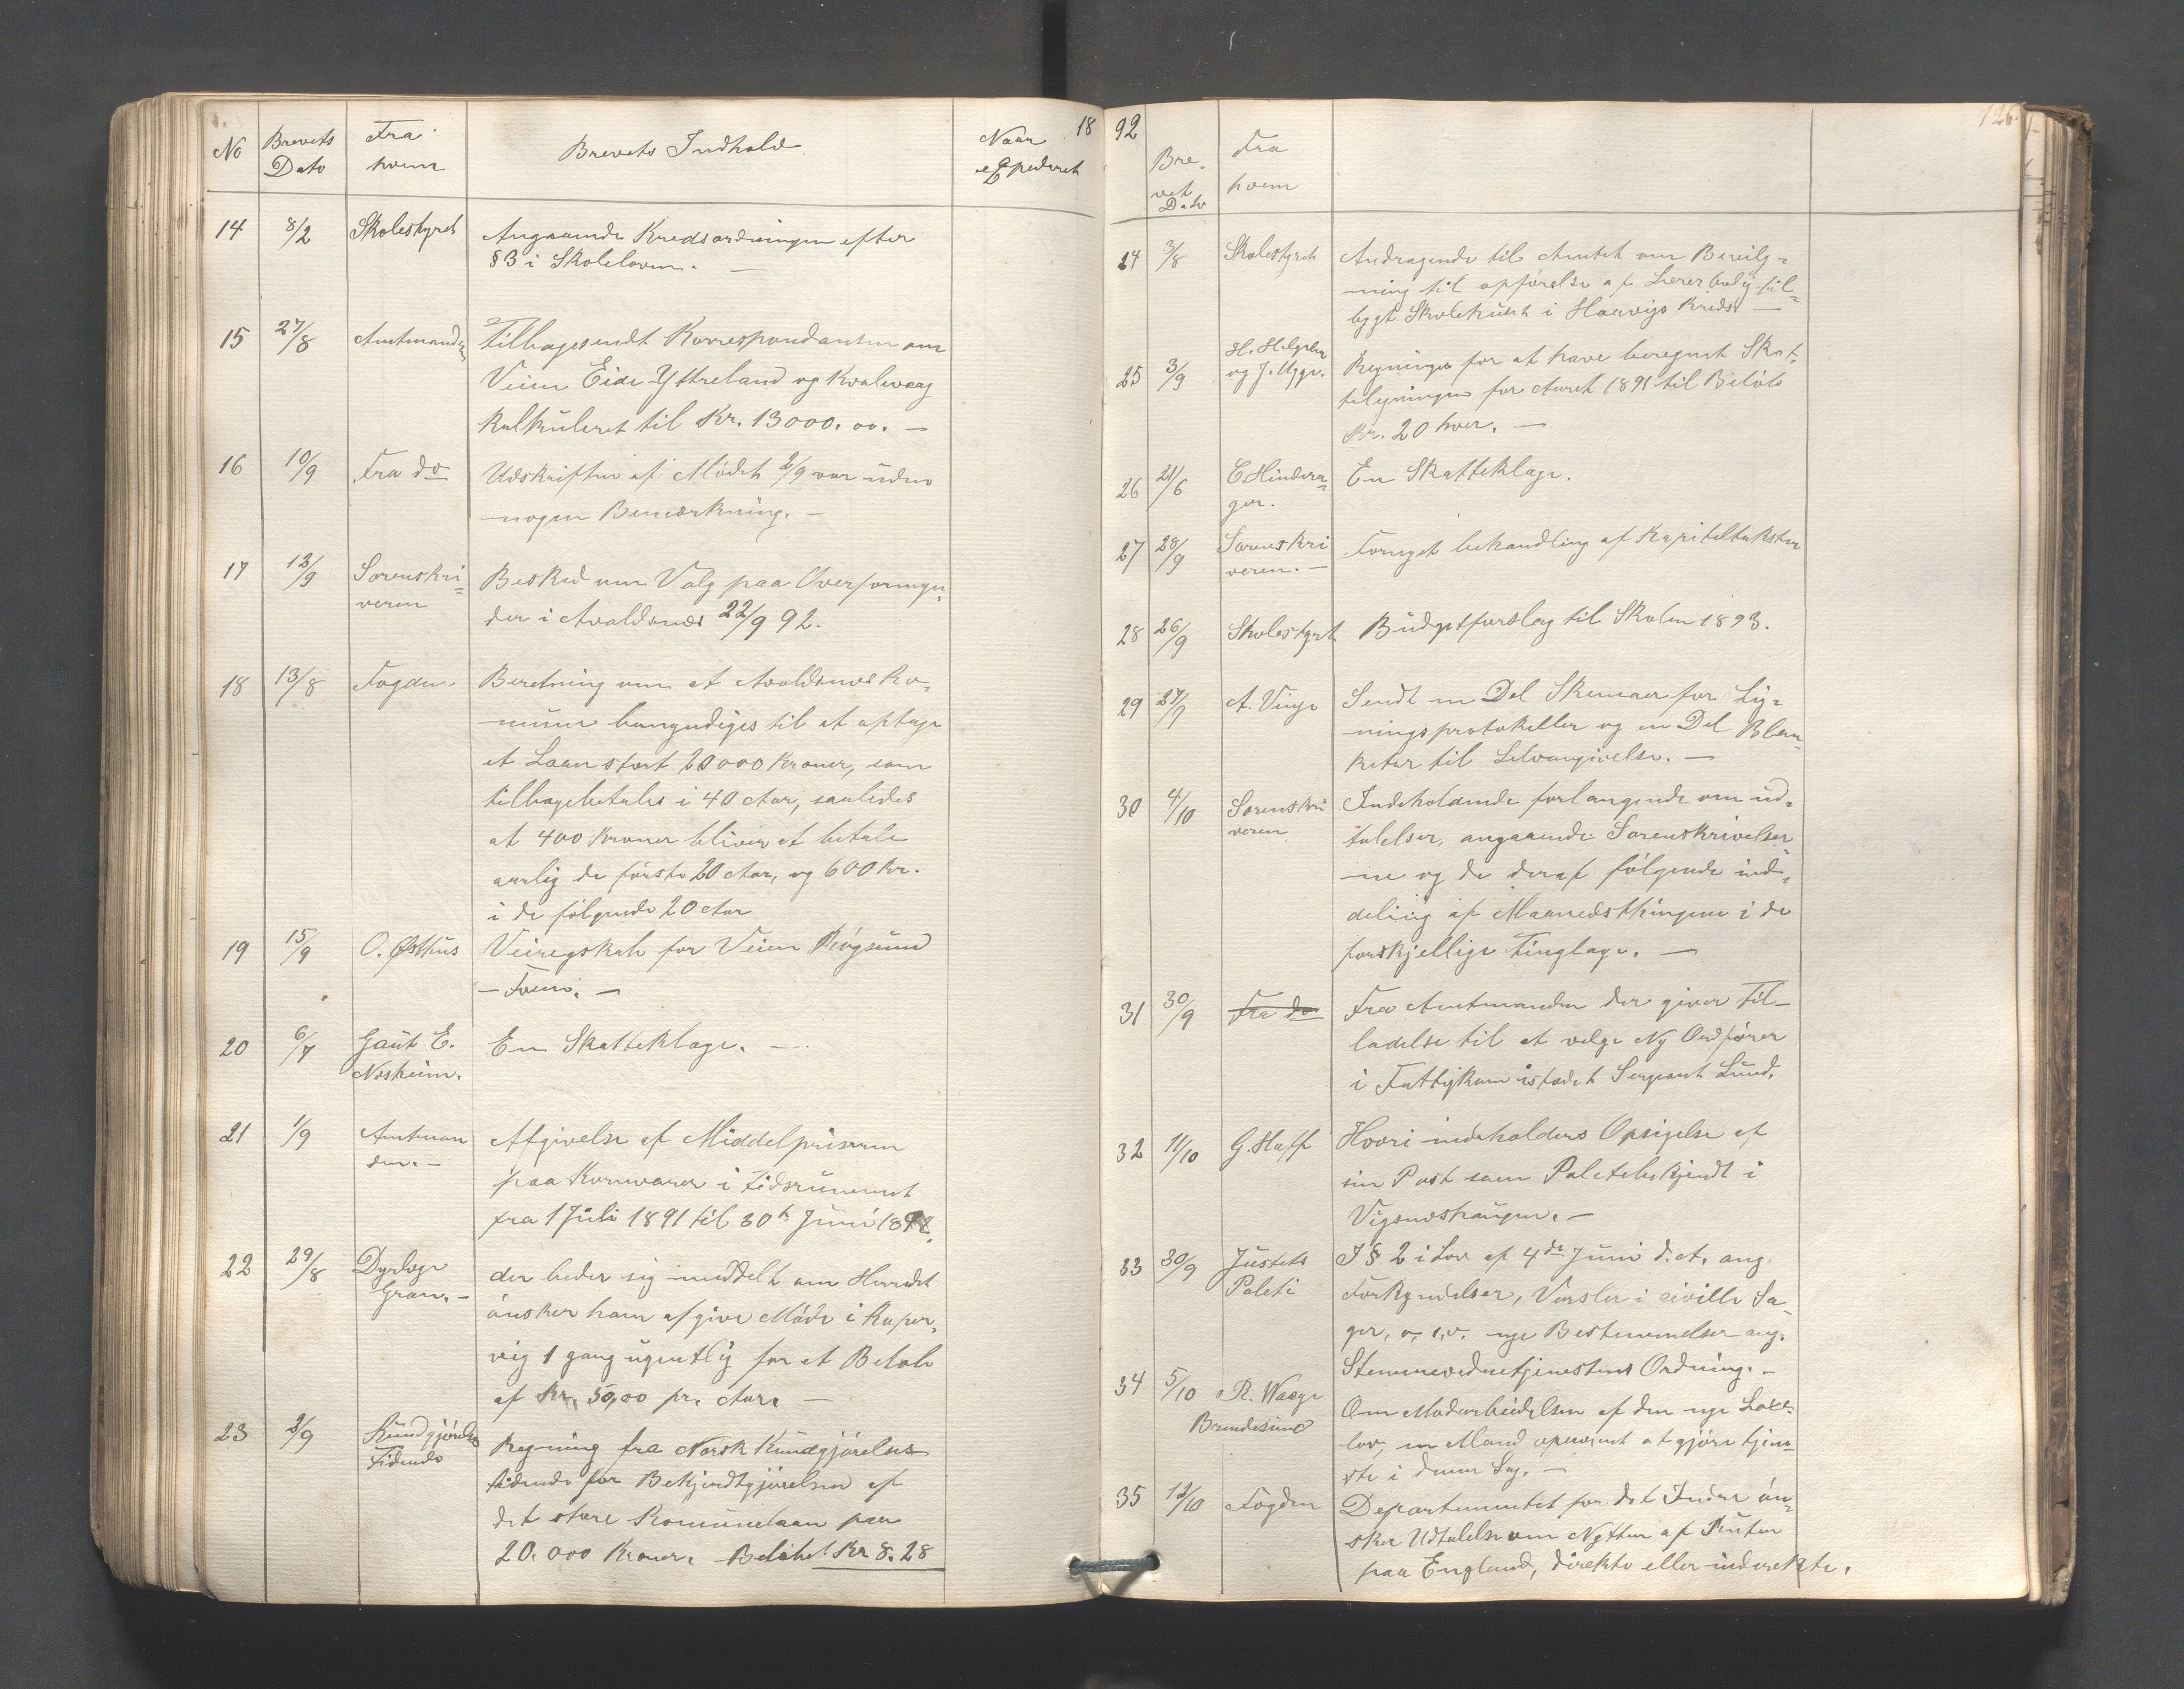 No Brevets Dato Fra hvem Brevets Indhold Naar expederet 18
14 8/2 Skolestyret Angaaende Kredsordningen efter
§ 3 i Skoleloven. —
15 27/8 Amtmanden Tilbagesendt Korrespondansen om
Veien Eide-Yttreland og Kvalevaag
kalkuleret til Kr. 13000. 00. —
16 10/9 Fra do Udskriften af Mødet 2/9 var uden
nogen Bemærkning. —
17 13/9 Sorenskri= Besked om Valg paa Overformyn-
veren der i Avaldsnes 22/9 92.
18 13/8 Fogden Beretning om at Avaldsnes Ko-
mune bemyndiges til at optage
et Laan stort 20000 Kroner, som
tilbagebetales i 40 Aar, saaledes
at 400 Kroner bliver at betale
aarlig de første 20 Aar, og 600 Kr.
i de følgende 20 Aar
19 15/9 O. Østhus Veiregskab for Veien Røgsund
— Foeno. —
20 6/7 Gaut E. En Skatteklage. —
Nesheim.
21 1/9 Amtman Afgivelse af Middelpriserne
den. — paa Kornvarer i Tidsrummet
fra 1 Juli 1891 til 30te Juni 1892.
22 29/8 Dyrlæge der beder sig meddelt om Herredet
Gran. — ønsker ham afgive Møde i Koper-
vig 1 gang ugentlig for et Beløb
af Kr. 50,00 pr. Aar. —
23 2/9 Kundgjørelses Regning fra Norsk Kundgjørelses
Tidende tidende for Bekjendtgjørelsen af
det store Komunelaan paa
20.000 Kroner. Beløbet Kr 8.28
92 126
Brevet Dato Fra hvem
24 3/8 Skolestyret Andragende til Amtet om Bevilg=
ning til opførelse af Lærerbolig til=
bygt Skolehuset i Haavigs Kreds —
25 3/9 H. Helgeland Regninger for at have beregnet Skat-
og J. Mygr. teligningen for Aaret 1891 til Beløb
Kr. 20 hver. —
26 21/6 C Hindera= En Skatteklage.
ger.
27 28/9 Sorenskri Fornyet behandling af Kapiteltaksten
veren. —
28 26/9 Skolestyret Budgetforslag til Skolen 1893.
29 27/9 A. Vinje Sendt en Del Skemaer for Lig=
ningsprotokoller og en Del Blan-
ketter til Selvangivelse. —
30 4/10 Sorenskri Indeholdende forlangende om ud=
veren talelser, angaaende Sorenskrivelser=
ne og de deraf følgende ind=
deling af Maanedsthingene i de
forskjellige Tinglage. —
31 30/9 Fra do Fra Amtmanden der giver Til-
ladelse til at velge Ny Ordfører
i Fattigkom istedet Sergeant Lund.
32 11/10 G. Haff Hvori indeholdes Opsigelse af
sin Post som Politebetjendt i
Vigsneshaugen. —
33 30/9 Justets I § 2 i Lov af 4de Juni d.A. ang.
Politi Forkyndelser, Varsler i civille Sa-
ger, o, s, v. nye Bestemmelser ang.
Stemmevidnetjenestens Ordning. —
34 5/10 R. Waage Om Modarbeidelsen af den nye Laxe-
Brendesund lov, en Mand opnevnt at gjøre tjene-
ste i denne Sag. —
35 12/10 Fogden Departementet for det Indre øn=
sker Udtalelse om Nytten af Ruten
paa England, direkte eller inderekte.